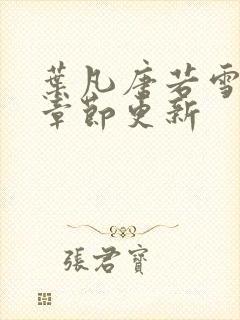 葉凡唐若雪
章節更新
張君寶